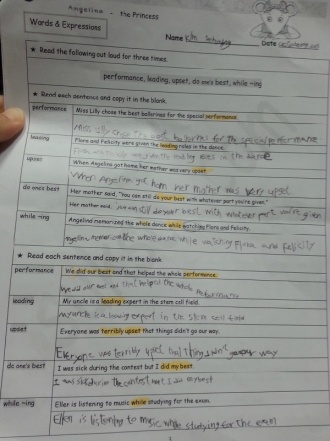 Angelina - the Princess
Words & Expressions
Name Kim
Date
★ Read the following out loud for three times.
performance, leading, upset, do one's best, while ~ing
★ Read each sentence and copy it in the blank.
performance
Miss Lilly chose the best ballerinas for the special performance.
Miss Lilly chose the best ballerinas for the special performance
leading
Flora and Felicity were given the leading roles in the dance.
roles in the dance
upset
When Angelina got home her mother was very upset.
When Angelina got home her mother was very upset
do one's best
Her mother said, "You can still do your best with whatever part you're given."
Her mother said, you can still do your best with whatever part you're given
while ~ing
Angelina memorized the whole dance while watching Flora and Felicity.
Angelina memorized the whole dance while watching Flora and Felicity
★ Read each sentence and copy it in the blank.
performance
We did our best and that helped the whole performance.
We did our best and that helped the whole performance
leading
My uncle is a leading expert in the stars cell field.
My uncle is a leading expert in the cell field
upset
Everyone was terribly upset that things didn't go our way.
Everyone was terribly upset that things didn't go our way
do one's best
I was sick during the contest but I did my best.
I was sick during the contest but I did my best
while ~ing
Ellen is listening to music while studying for the exam.
Ellen is listening to music while studying for the exam